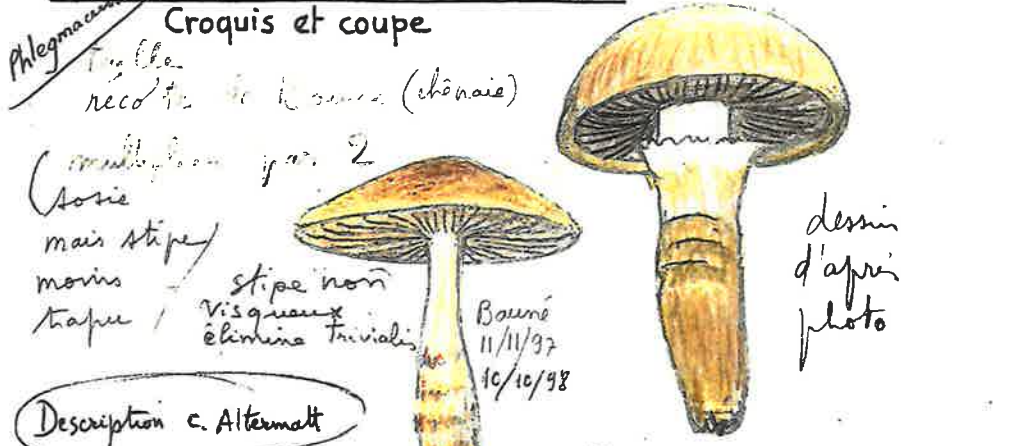 Croquis et coupe
Taille
(chênaie)
par 2
(sosie
mais stipe
moins
trapu
stipe non
visqueux
élimine trivialis
Bauné
11/11/97
10/10/98
dessin
d'après
photo
Description C. Altermatt